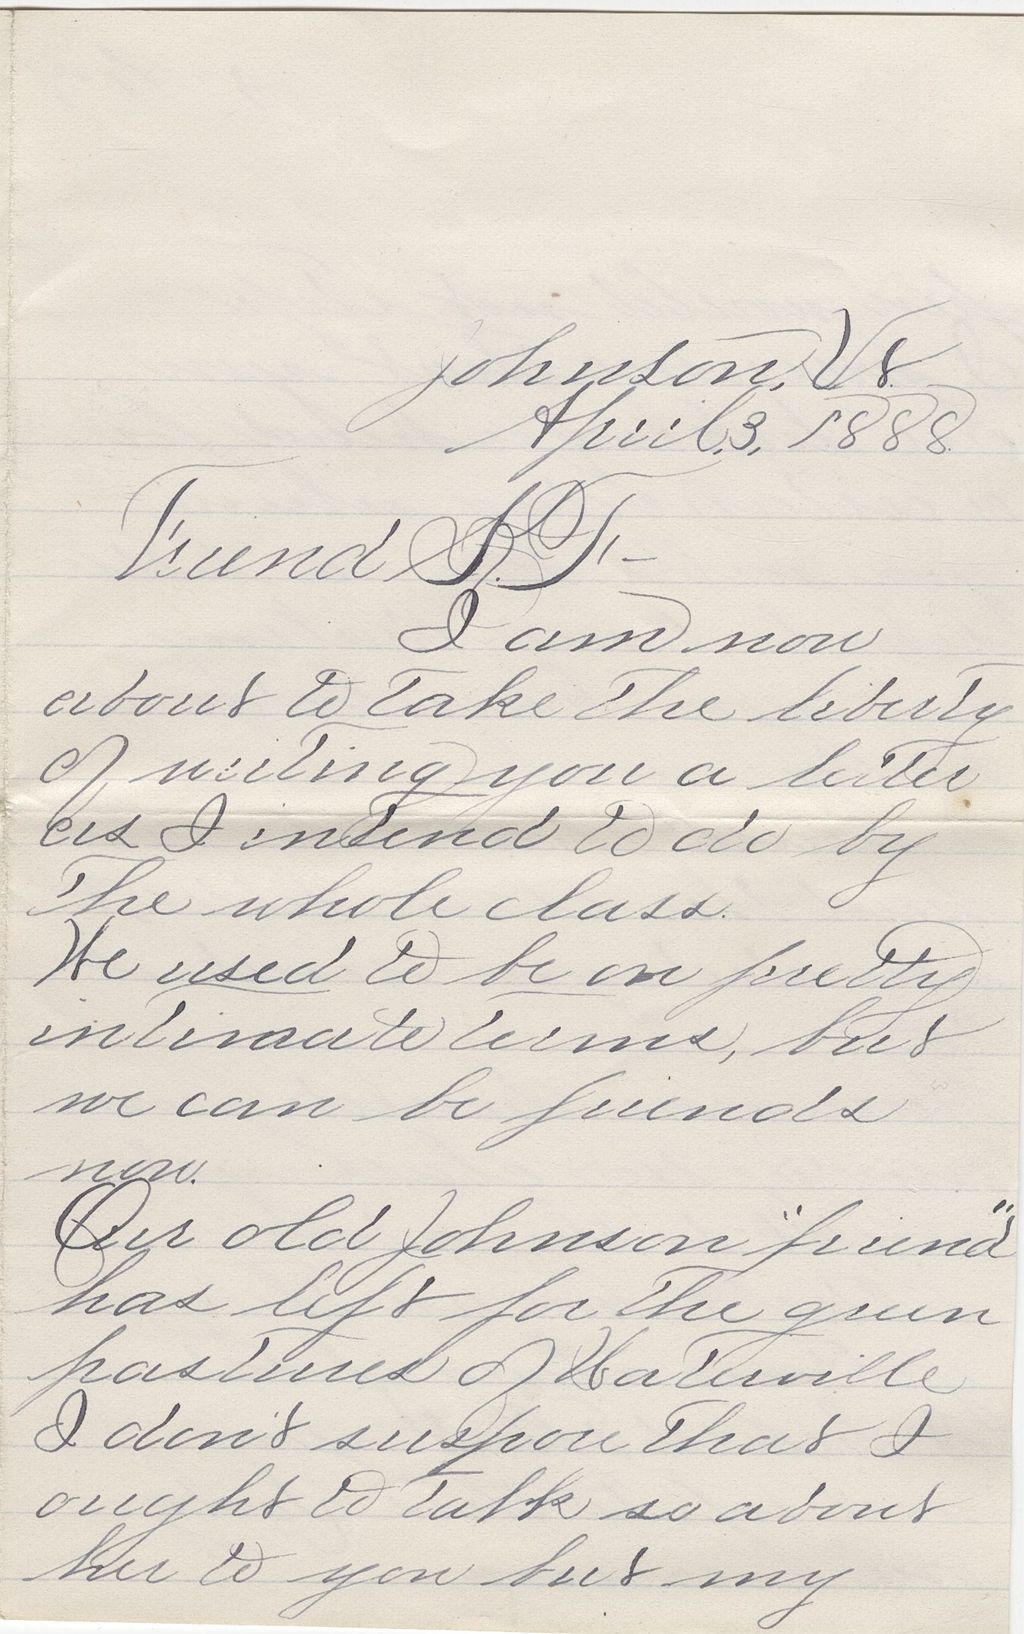 Johnson, Vt.
April, 3, 1888.
Friend F.—
I am now
about to take the liberty
of writing you a letter
as I intend to do by
the whole class.
We used to be on pretty
intimate terms, but
we can be friends
now.
Our old Johnson "friend"
has left for the green
pastures of Waterville
I don't suspose that I
ought to talk so about
her to you but my